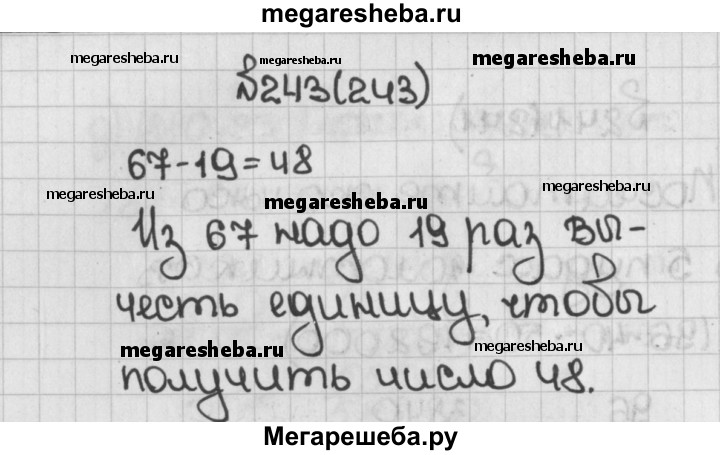 megaresheba.ru
megaresheba.ru megaresheba.ru megaresheba.ru
№243(243)
67-19=48
megaresheba.ru megaresheba.ru megaresheba.ru
Из 67 надо 19 раз вы-
честь единицу, чтобы
megaresheba.ru megaresheba.ru
получить число 48.
Мегарешеба.ру